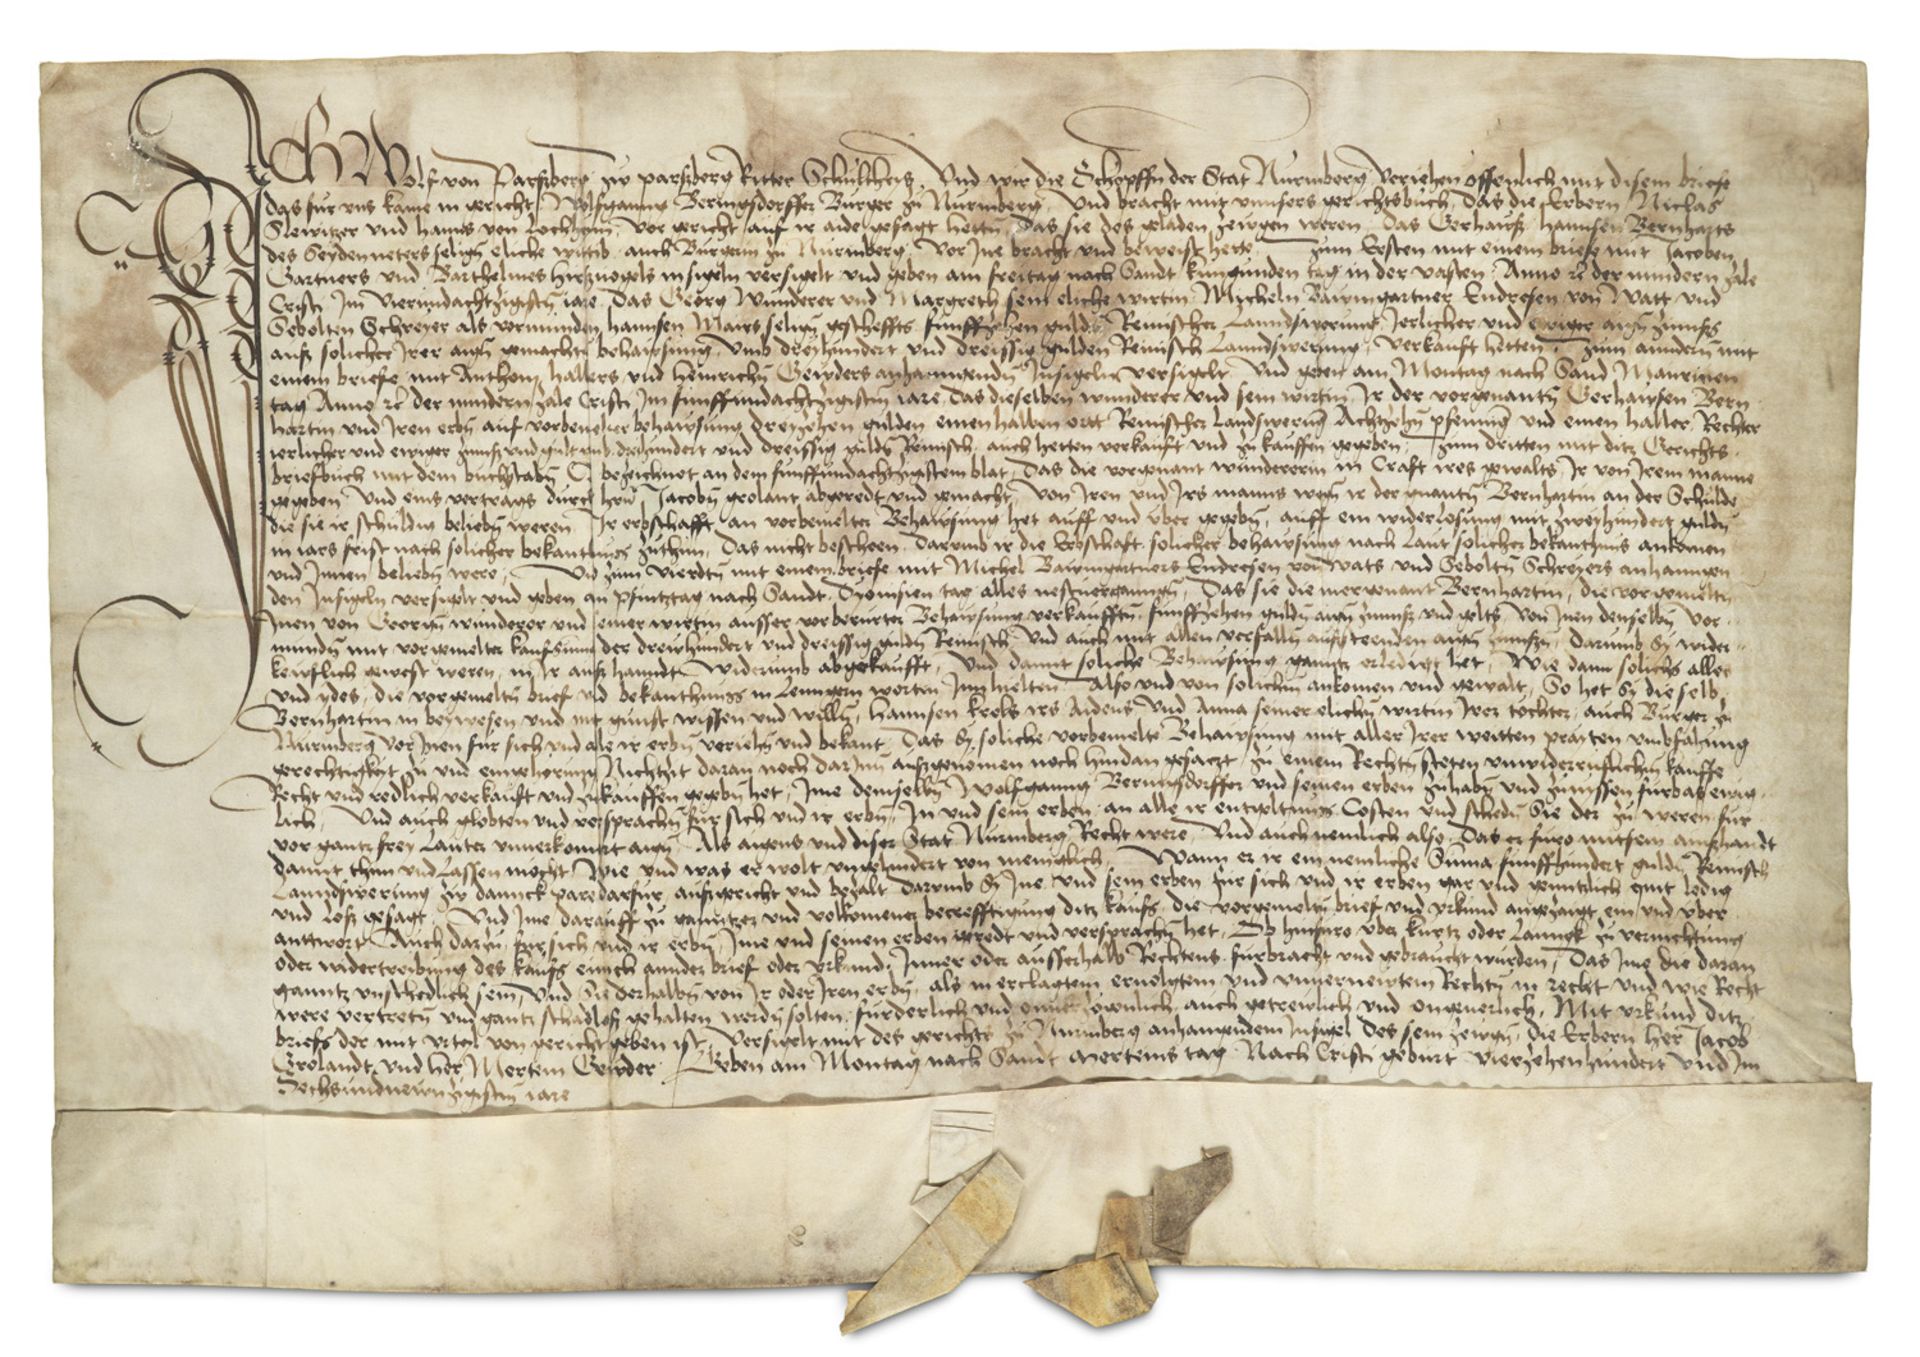 Ich Wolf von Parsberg zu parsberg Ritter Schultheis Und wir die Schopffen der Stat Nurmberg Veriehen offennlich mit disem briefe
das fur vns kame in gericht Wolfganng Beringsdorffer Burger zu Nurmberg Und bracht mit vnnsers gerichtsbuch Das die Erbern Niclas
und Hanns von Lochaim vor gericht auf ir aide gesagt hetten Das sie des geladen zewgen weren Das Gerhawß Hannsen Bernharts
des Seydenneters seligen eliche wittib auch Burgerin zu Nurmberg Vor Ine bracht und beweist hette Zum Ersten mit einem briefe mit Jacoben
Gartners und Barthelmes Hirßuogels insigeln versigelt und geben am freitag nach Sandt kungunden tag in der vasten Anno &c der mindern zale
Cristi Im Vierundachtzigisten iare Das Georg Wunderer und Margreth sein eliche wirtin Micheln Bawmgartner Endresen von Watt und
Sebolten Schreyer als vormunden Hannsen Mairs seligen gescheffts funffzehen gulden Reinischer Lanndswerung Jerlicher und ewiger aigen zinnß
auß solicher Irer aigen gemachten behawsung umb dreyhundert und dreissig gulden Reinisch Lanndswerung verkauft hetten Zum anndern mit
einem briefe mit Anthonj Hallers und Heinrichen Gewders anhanngenden Insigeln versigelt Und geben am Montag nach Sand Mauricien
tag Anno &c der mindern zale Cristi Im funffundachtzigisten iare Das dieselben wunderer und sein wirtin Ir der vorgenanten Gerhawsen Bern
hartin und Iren erben auf vorbenenter behawsung dreyzehen gulden einen halben ortt Reinischer Landswerung Achtzehen pfenning und einen haller Rechter
ierlicher und ewiger zinnß und gult umb dreihundert und dreissig gulden Reinisch auch hetten verkauft und zu kauffen gegeben Zum dritten mit ditz Gerichts
briefbuch mit dem buchstaben C bezeichnet an dem funffundachtzigistem blat Das die vorgenant wundererin in Craft ires gewalts Ir von Irem manne
gegeben Und eins vertrags durch hern Jacoben grolant abgeredt und gemacht von Iren und Irs manns wegen ir der gnanten Bernhartin an der Schulde
die sie ir schuldig beliben weren Ir erbschafft an vorbemelter Behawsung het auff und uber gegeben auff ein widerlosung mit zweyhundert gulden
in iars frist nach solicher bekantnus zuthun Das nicht bescheen Darumb ir die Erbschaft solicher behawsung nach laut solicher bekanthnus ankomen
und Innen beliben were Und zum vierdten mit einem briefe mit Michel Bawmgartners Endresen von Wats und Sebolten Schreyers anhanngen
den Insigeln versigelt und geben an pfintztag nach Sandt Dyonisien tag alles nestuergangen Das sie die mergenant Bernhartin die vorgemelten
Inen von Georgen wunderer und seiner wirtin ausser vorberurter Behawsung verkaufften funffzehen gulden aigen zinnß und gelts von Inen denselben vor
munden mit vorgemelter kaufsum der dreyhundert und dreissig gulden Reinisch Und auch mit allen verfallen aufsteenden aigen zinnßen Darumb Sy wider
kewflich gewest weren in Ir auß hanndt widerumb abgekaufft Und damit soliche Behawsung gantz erledigt het Wie dann solichs alles
und ydes die vorgemelten brief und bekanthnuss in lenngern worten Innhielten Also und von solichem ankomen und gewalt So het Sy dieselb
Bernhartin in beywesen und mit gunst wissen und willen Hannsen krebs irs Aidens und Anna seiner elichen wirtin Irer tochter auch Burger zu
Nurmberg vor Inen fur sich und alle ir erben veriehen und bekant Das Sy soliche vorbemelte Behawsung mit aller Irer weitten praiten umbfahung
gerechtigkeit zu und eingehorung Nichtzit daran noch darinn außgenomen noch hindan gesaczt zu einem Rechten steten unwiderruflichen kauffe
Recht und redlich verkauft und zukauffen gegeben het Ime demselben Wolfganng Beringsdorffer und seinen erben zuhaben und zunissen furbas ewig
lich Und auch globten und versprachen fur sich und ir erben In und sein erben an alle ir entgeltnus Costen und scheden Sie der zu weren fur
vor gantz frey lauter unuerkomert aigen Als aigens und diser Stat Nurmberg Recht were Und auch nemlich also Das er furo mit sein außhandt
damit thun und lassen mocht Wie und was er wolt ungehindert von meniglich Wann er ir ein nemliche Suma funffhundert gulden Reinisch
Lanndswerung zu dannck pare darfur außgericht und bezalt Darumb Sy Ine und sein erben fur sich und ir erben gar und genntzlich quit ledig
und loß gesagt Und Ime darauff zu gantzer und volkomener becrefftigung ditz kaufs die vorgemelten brief und urkund angezaigt ein und uber
anttwort Auch darzu fur sich und ir erben Ime und seinen erben geredt und versprochen het Ob hinfuro uber kurtz oder lanngk zu vernichtung
oder widertreibung des kaufs einich annder brief oder urkund Inner oder ausserhalb Rechtens furbracht und gebraucht wurden Das Ime die daran
ganntz unschedlich sein Und Sie derhalben von Ir oder Iren erben als in erclagtem eruolgtem und unuernewtem Rechten in recht und wie Recht
were vertreten und gantz schadloß gehalten werden solten furderlich und auch getrewlich und ongeuerlich Mit urkund ditz
briefs der mit urtel von gericht geben ist Versigelt mit des gerichts zu Nurmberg anhangendem Insigel Des sein zewgen die Erbern her Jacob
Grolandt und her Mertein Gewder Geben am Montag nach Sandt Merteins tag Nach Cristi geburt vierzehenhundert und Im
Sechsundnewnzigisten iare